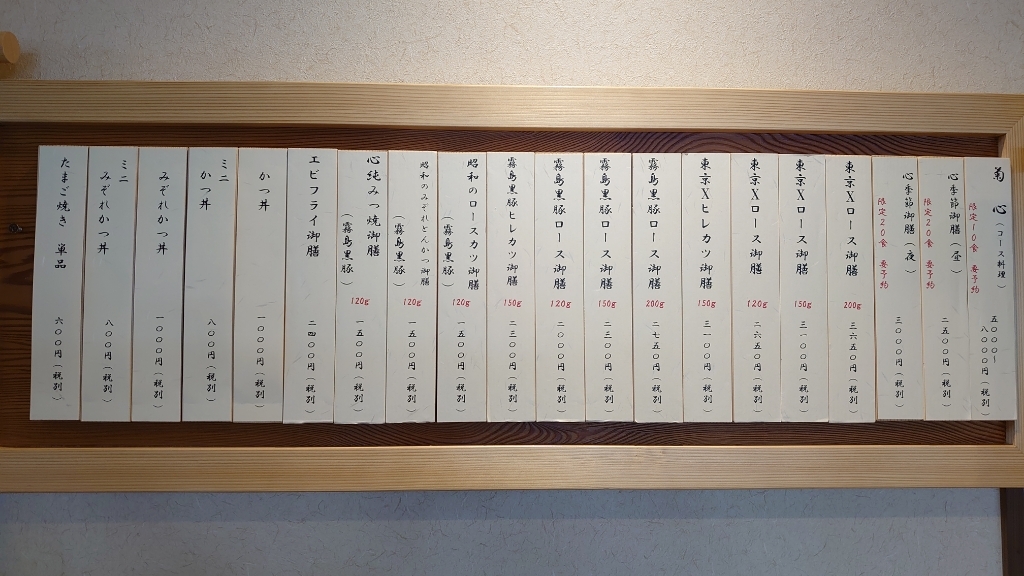 菊 心（コース料理）
限定10食 要予約
五〇〇〇～
八〇〇〇円（税別）
心季節御膳（昼）
限定20食 要予約
二五〇〇円（税別）
心季節御膳（夜）
限定20食 要予約
三〇〇〇円（税別）
東京Xロース御膳
200g
三六五〇円（税別）
東京Xロース御膳
150g
三一〇〇円（税別）
東京Xロース御膳
120g
二六五〇円（税別）
東京Xヒレカツ御膳
150g
三一〇〇円（税別）
霧島黒豚ロース御膳
200g
二七五〇円（税別）
霧島黒豚ロース御膳
150g
二三〇〇円（税別）
霧島黒豚ロース御膳
120g
二〇〇〇円（税別）
霧島黒豚ヒレカツ御膳
150g
二三〇〇円（税別）
昭和のロースカツ御膳
（霧島黒豚）
120g
一五〇〇円（税別）
昭和のみぞれとんかつ御膳
（霧島黒豚）
120g
一五〇〇円（税別）
心純みつ焼御膳
（霧島黒豚）
120g
一五〇〇円（税別）
エビフライ御膳
二四〇〇円（税別）
かつ丼
一〇〇〇円（税別）
ミニ
かつ丼
八〇〇円（税別）
みぞれかつ丼
一〇〇〇円（税別）
ミニ
みぞれかつ丼
八〇〇円（税別）
たまご焼き 単品
六〇〇円（税別）